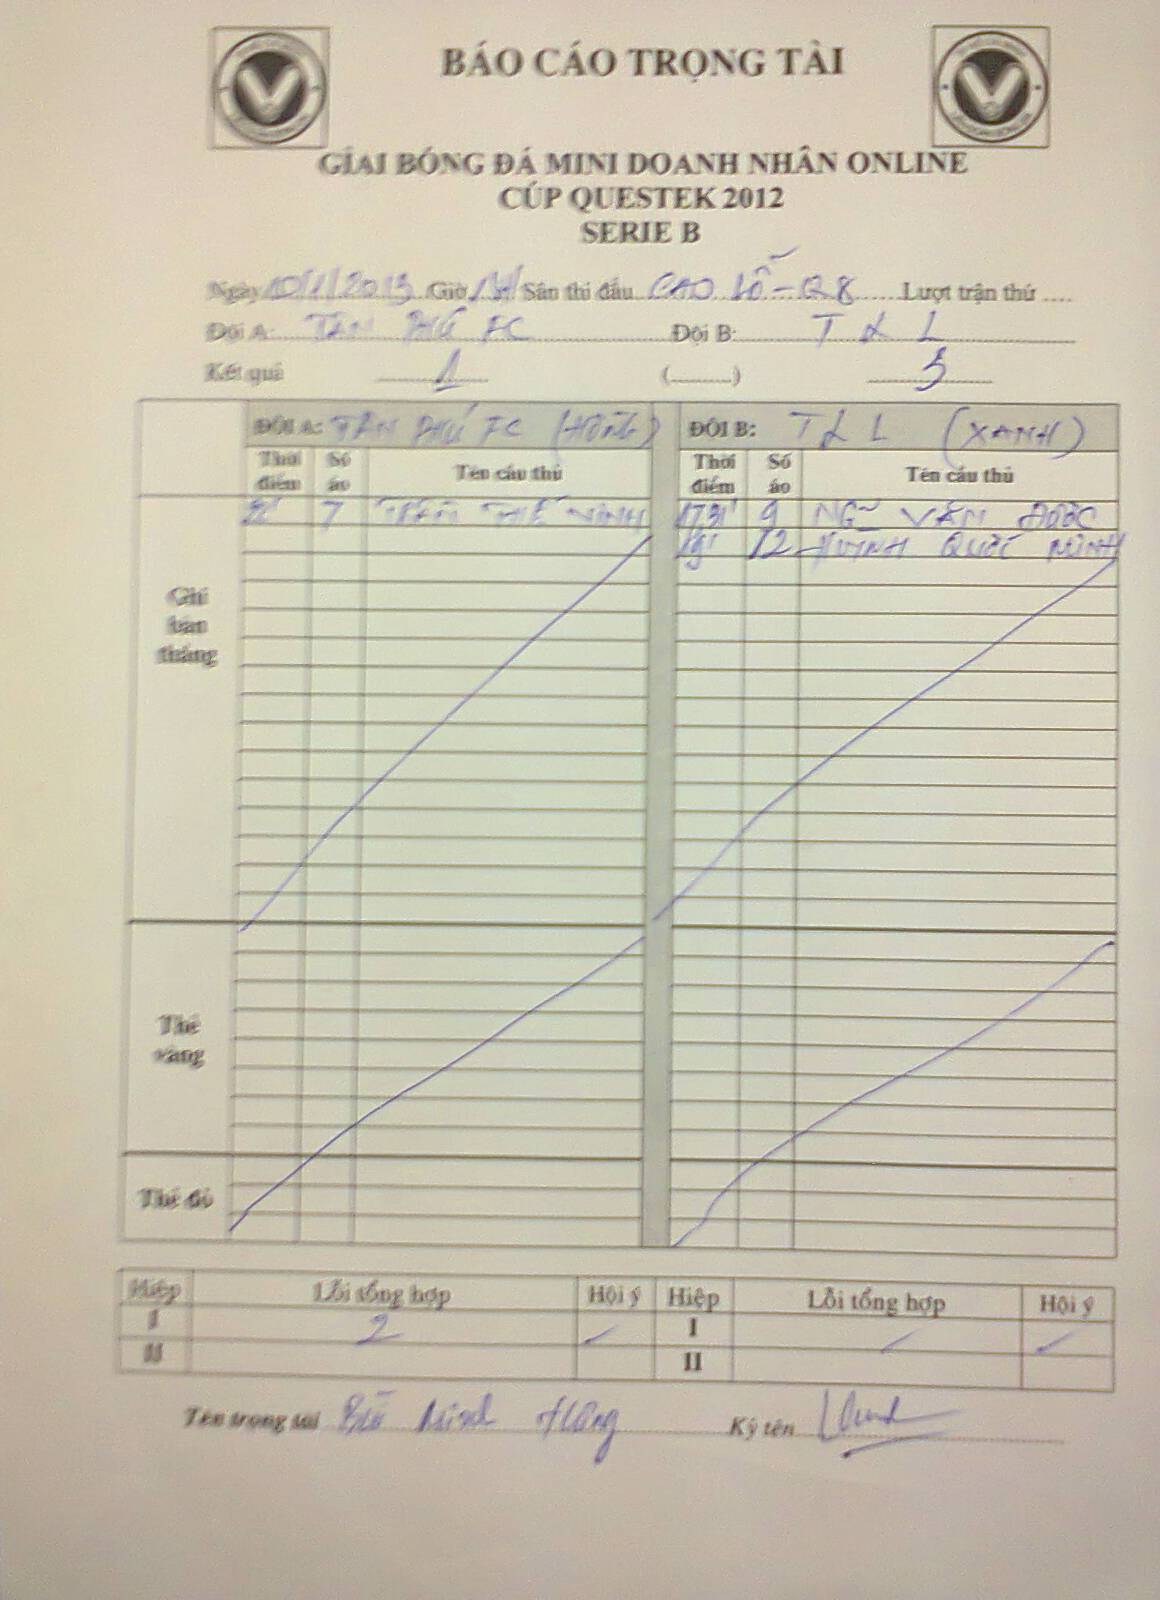 BÁO CÁO TRỌNG TÀI
GIẢI BÓNG ĐÁ MINI DOANH NHÂN ONLINE
CÚP QUESTEK 2012
SERIE B
Ngày 10/1/2013 Giờ Sân thi đấu CAO LỖ - Q8 Lượt trận thứ ....
Đội A: TÂN PHÚ FC Đội B: T & L
Kết quả 1 (..........) 3
ĐỘI A: TÂN PHÚ FC (HỒNG) ĐỘI B: T & L (XANH)
Thời điểm Số áo Tên cầu thủ Thời điểm Số áo Tên cầu thủ
7 THẾ VINH 9 VĂN ĐƯỢC
12 HUỲNH QUỐC MINH
Ghi bàn thắng
Thẻ vàng
Thẻ đỏ
Hiệp Lỗi tổng hợp Hội ý Hiệp Lỗi tổng hợp Hội ý
I 2 I
II II
Tên trọng tài Minh Ký tên